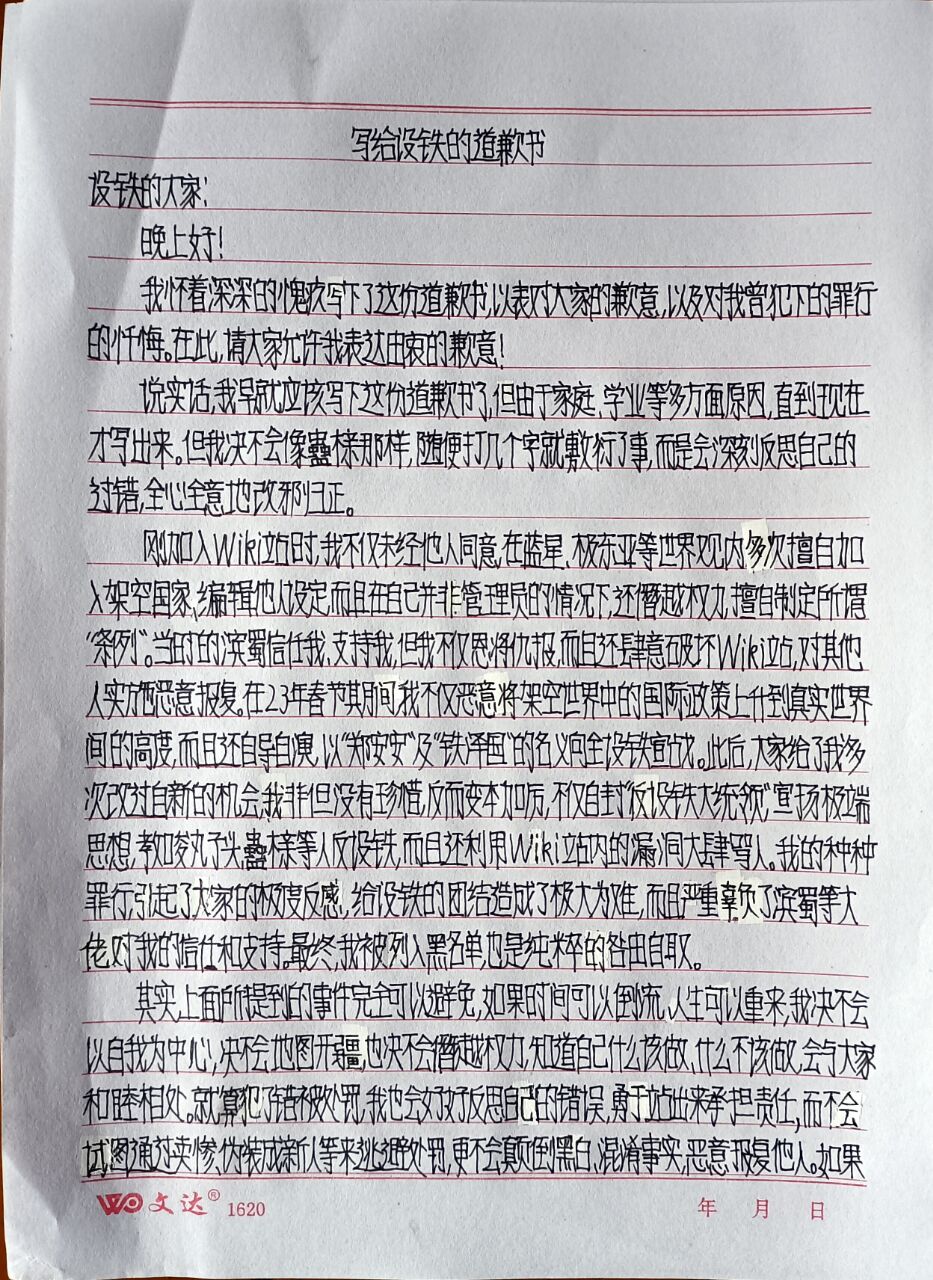 写给设铁的道歉书
设铁的大家：
晚上好！
我怀着深深的愧疚写下了这份道歉书，以表对大家的歉意，以及对我曾犯下的罪行
的忏悔。在此，请大家允许我表达由衷的歉意！
说实话，我早就应该写下这份道歉书了，但由于家庭、学业等多方面原因，直到现在
才写出来。但我决不会像蠡棣那样，随便打几个字就敷衍了事，而是会深刻反思自己的
过错，全心全意地改邪归正。
刚加入Wiki站时，我不仅未经他人同意，在蓝星、极东亚等世界观内多次擅自加
入架空国家、编辑他人设定，而且在自己并非管理员的情况下，还僭越权力，擅自制定所谓
“条例”。当时的滨蜀信任我、支持我，但我不仅恩将仇报，而且还肆意破坏Wiki站，对其他
人实施恶意报复。在23年春节其期间，我不仅恶意将架空世界中的国际政策上升到真实世界
间的高度，而且还自导自演，以“郑安安”及“铁泽国”的名义向全设铁宣战。此后，大家给了我多
次改过自新的机会，我非但没有珍惜，反而变本加厉，不仅自封“反设铁大统领”，宣扬极端
思想，教唆丸子头、蠡棣等人反设铁，而且还利用Wiki站内的漏洞大肆骂人。我的种种
罪行，引起了大家的极度反感，给设铁的团结造成了极大为难，而且严重辜负了滨蜀等大
佬对我的信任和支持。最终，我被列入黑名单，也是纯粹的咎由自取。
其实，上面所提到的事件完全可以避免，如果时间可以倒流，人生可以重来，我决不会
以自我为中心，决不会地图开疆，也决不会僭越权力，知道自己什么该做，什么不该做，会与大家
和睦相处。就算犯了错被处罚，我也会好好反思自己的错误，勇于站出来承担责任，而不会
试图通过卖惨、伪装成新人等来逃避处罚，更不会颠倒黑白、混淆事实，恶意报复他人。如果
文达® 1620
年 月 日